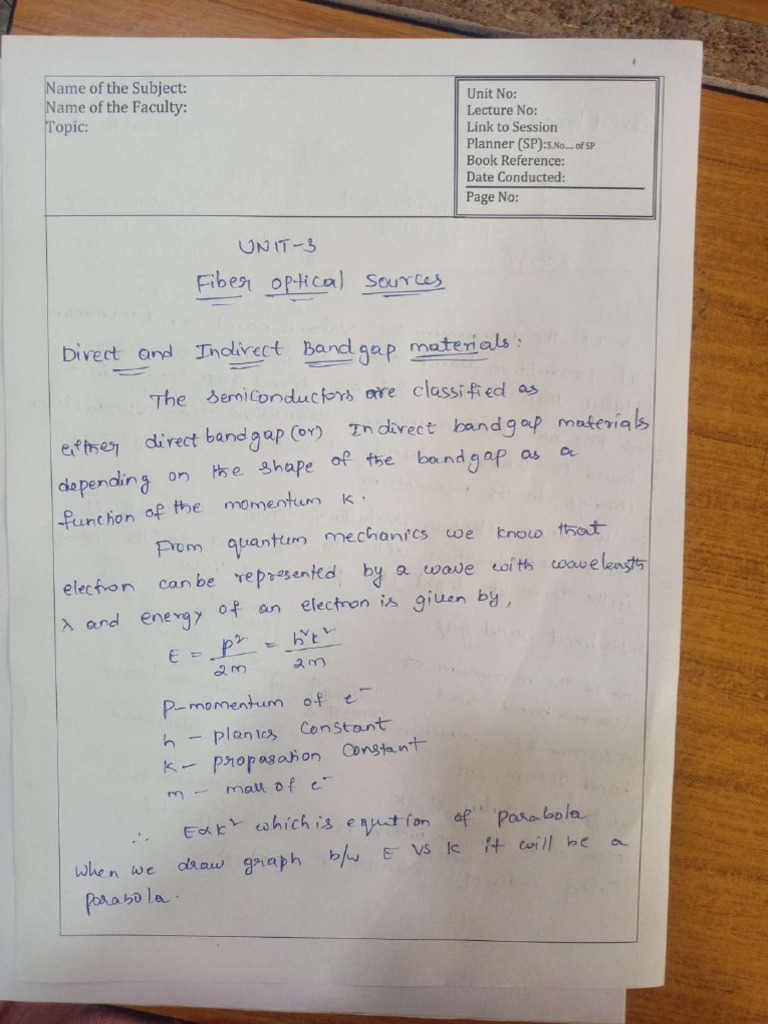 Name of the Subject:
Name of the Faculty:
Topic:
Unit No:
Lecture No:
Link to Session
Planner (SP):S.No.... of SP
Book Reference:
Date Conducted:
Page No:
UNIT-3
Fiber optical Sources
Direct and Indirect Band gap materials:
The semiconductors are classified as
either direct bandgap (or) Indirect bandgap materials
depending on the shape of the bandgap as a
function of the momentum K.
From quantum mechanics we know that
electron canbe represented by a wave with wavelength
λ and energy of an electron is given by,
E = p²/2m = h²k²/2m
P-momentum of e⁻
h - planks constant
k - propagation constant
m - mass of e⁻
∴ E∝K² which is eqution of "parabola
When we draw graph b/w E VS K it will be a
parabola.